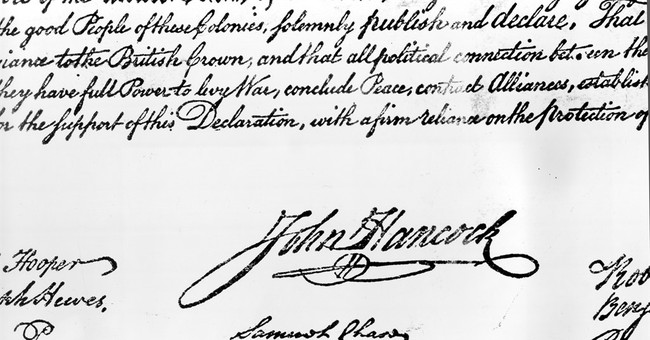 the good People of these Colonies, solemnly publish and declare, That
iance to the British Crown, and that all political connection between the
they have full Power to levy War, conclude Peace, contract Alliances, establish
or the support of this Declaration, with a firm reliance on the protection of
John Hancock
Hooper
ph Hewes,
Rob
Benj
Samuel Chase